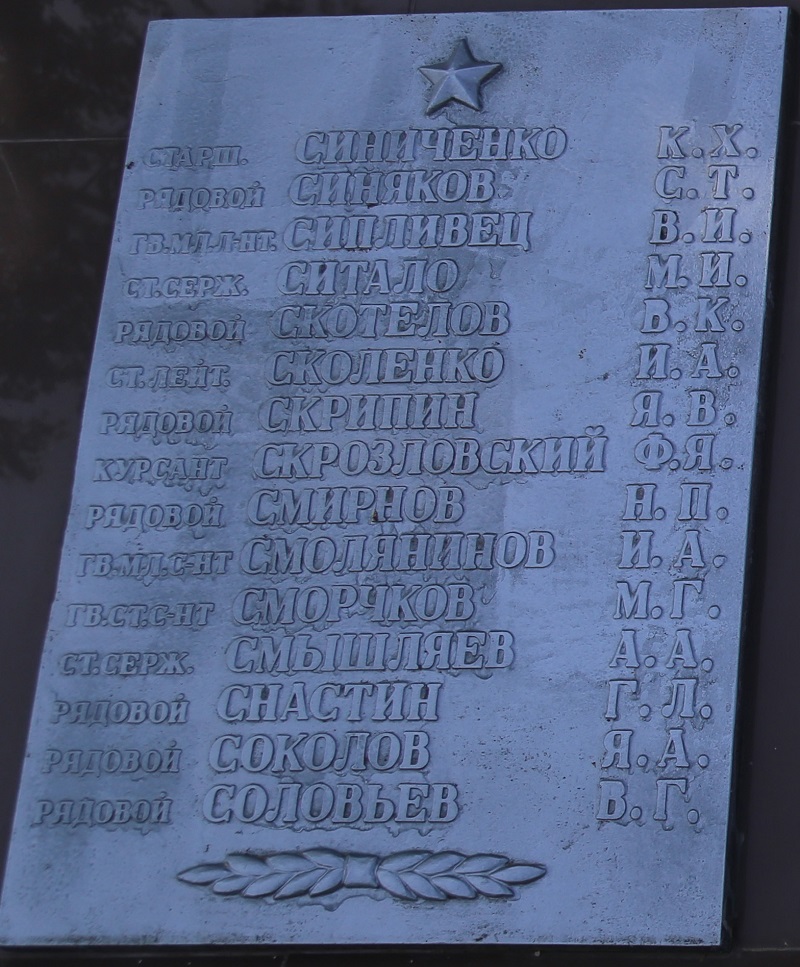 СТАРШ. СИНИЧЕНКО К.Х.
РЯДОВОЙ СИНЯКОВ С.Т.
ГВ.МЛ.Л-НТ. СИПЛИВЕЦ В.И.
СТ.СЕРЖ. СИТАЛО М.И.
РЯДОВОЙ СКОТЕЛОВ В.К.
СТ.ЛЕЙТ. СКОЛЕНКО И.А.
РЯДОВОЙ СКРИПИН Я.В.
КУРСАНТ СКРОЗЛОВСКИЙ Ф.Я.
РЯДОВОЙ СМИРНОВ Н.П.
ГВ.МЛ.С-НТ СМОЛЯНИНОВ И.А.
ГВ.СТ.С-НТ СМОРЧКОВ М.Г.
СТ.СЕРЖ. СМЫШЛЯЕВ А.А.
РЯДОВОЙ СНАСТИН Г.Л.
РЯДОВОЙ СОКОЛОВ Я.А.
РЯДОВОЙ СОЛОВЬЕВ В.Г.